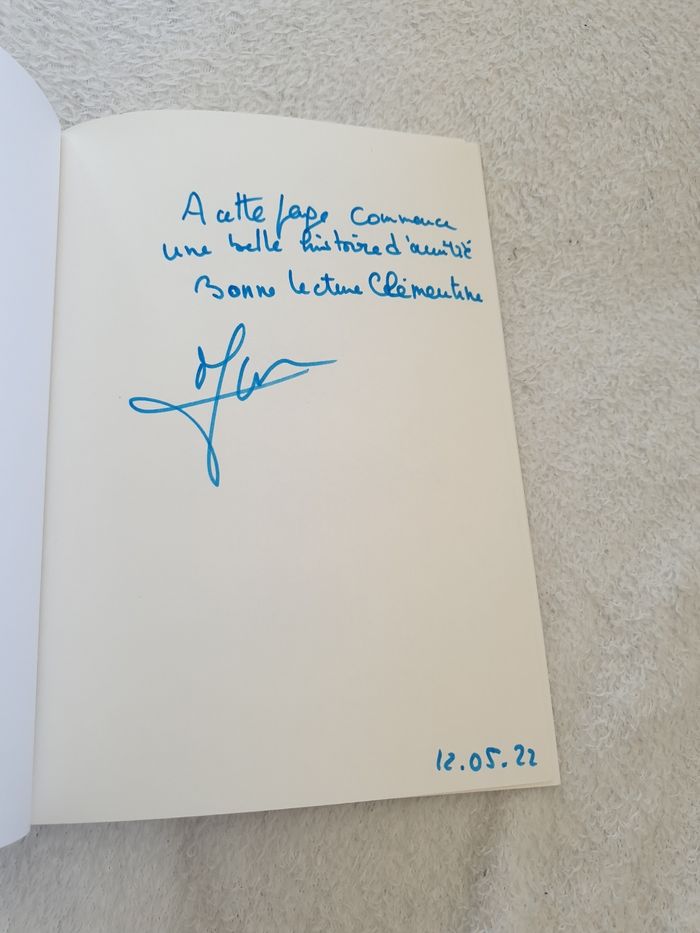 A cette page commence
une belle histoire d'amitié
Bonne lecture Clémentine
12.05.22